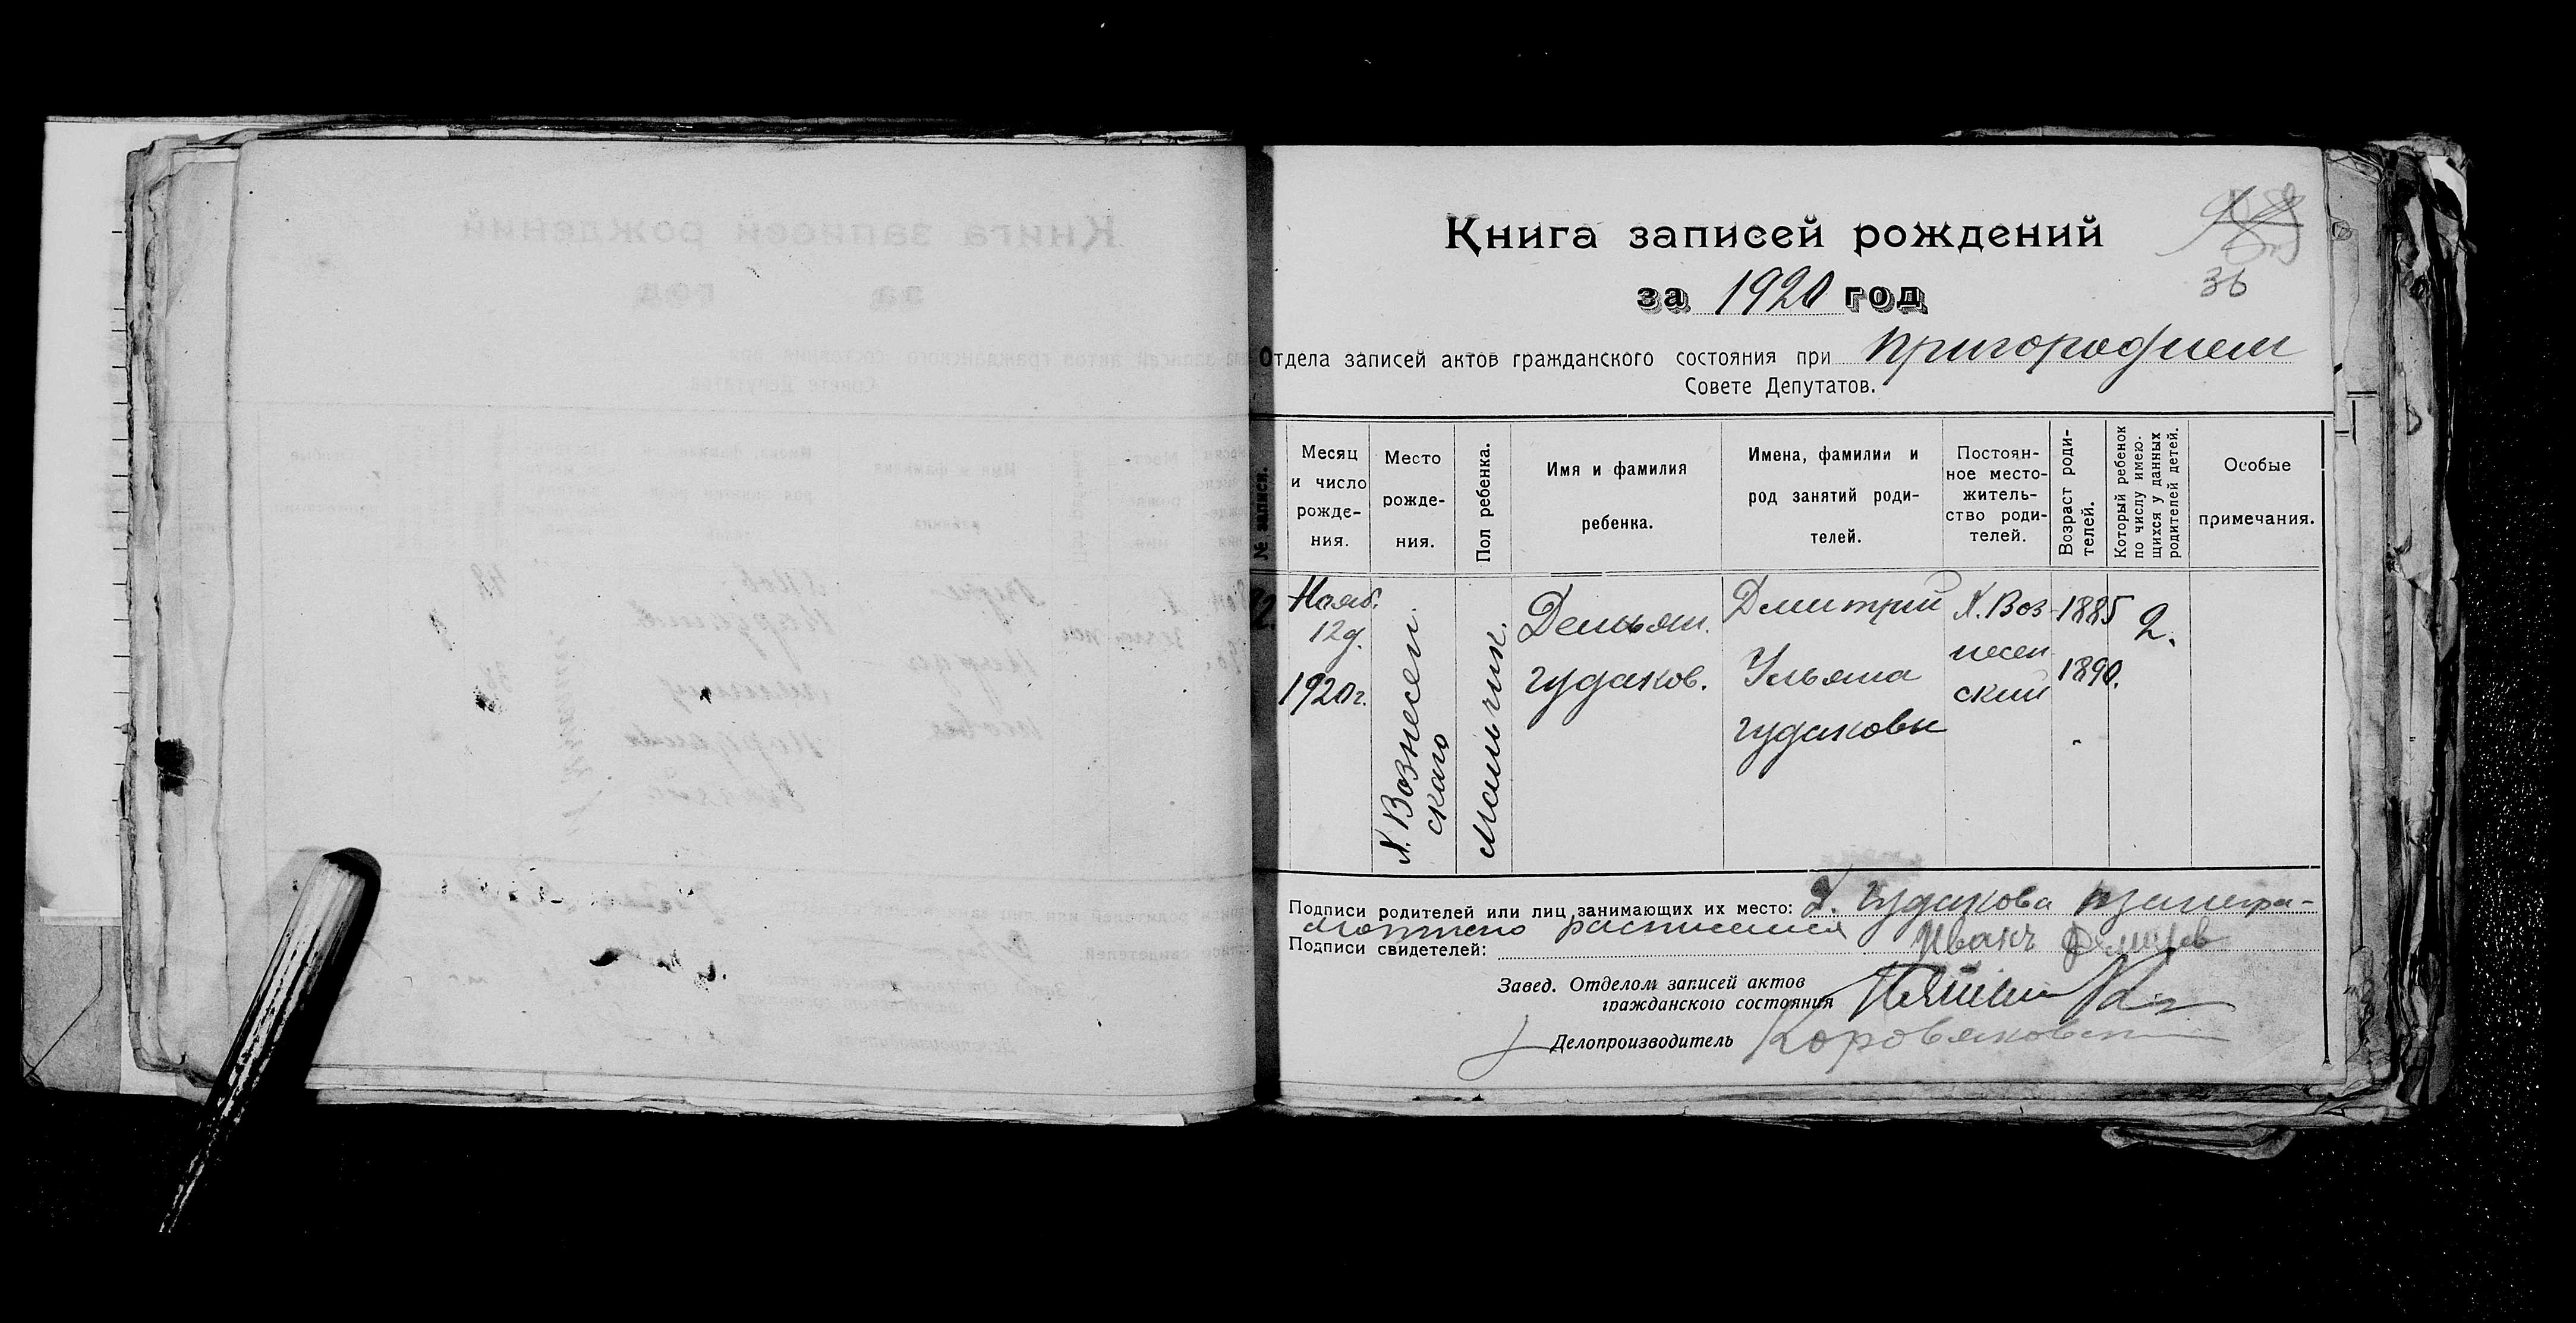 Книга записей рождений
за 1920 год
36
Отдела записей актов гражданского состояния при пригороднем
Совете Депутатов.
№ записи.
Месяц и число рожде- ния.
Место рожде- ния.
Пол ребенка.
Имя и фамилия ребенка.
Имена, фамилии и род занятий роди- телей.
Постоян- ное место- житель- ство роди- телей.
Возраст роди- телей.
Который ребенок по числу имею- щихся у данных родителей детей.
Особые примечания.
2.
Нояб.
12д.
1920г.
Х. Вознесен
ского
мальчик.
Демьян.
гудаков.
Дмитрий
Ульяна
гудаковы
Х. Воз
несен
ский
1885
1890.
2.
Подписи родителей или лиц занимающих их место: гудакова
Подписи свидетелей: Иванъ
Завед. Отделом записей актов
гражданского состояния
Делопроизводитель